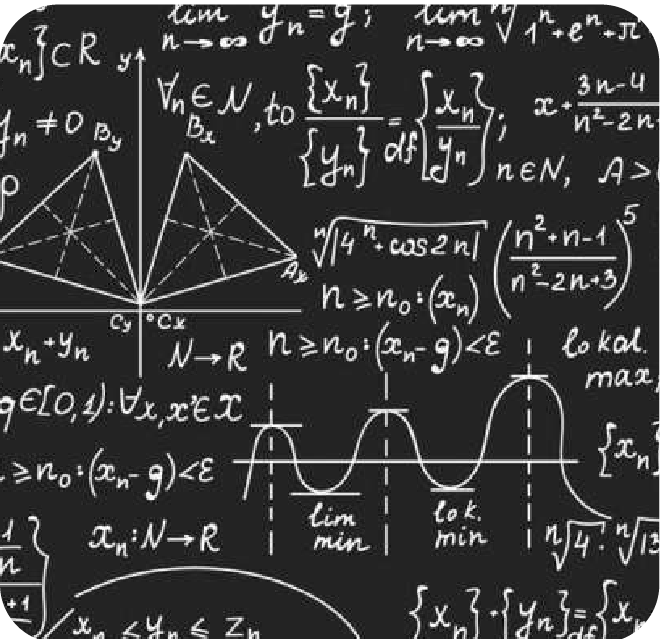 lim yₙ = g; lim ⁿ√1ⁿ+eⁿ+π
n→∞ n→∞
xₙ}⊂R y
∀n∈N, to {xₙ}/{yₙ} =df {xₙ/yₙ}; x+ 3n-4/n²-2n
yₙ ≠ 0 By Bx
n∈N, A>
p
ⁿ√|4ⁿ+cos2n| (n²+n-1/n²-2n+3)⁵
Ax
n≥n₀:(xₙ)
Cy °Cx
xₙ+yₙ N→R n≥n₀:(xₙ-g)<ε lokal.
max,
g∈[0,1):∀x,x'∈X
{xₙ}
≥n₀:(xₙ-g)<ε
lim lok.
min min
1/n xₙ:N→R ⁿ√4 · ⁿ√13
+1
xₙ ≤ yₙ ≤ zₙ {xₙ}·{yₙ}=df{xₙ